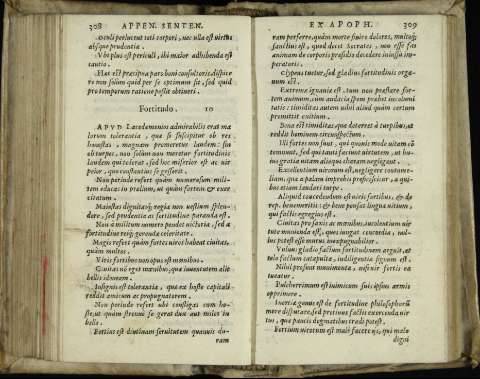 308 APPEN. SENTEN.
Oculi prælucent toti corpori, nec ulla est uirtus
absque prudentia.
Vbi plus est periculi, ibi maior adhibenda est
cautio.
Hæc est præcipua pars boni consultoris, dispice
re non solum quid per se optimum sit, sed quid
pro temporum ratione possit obtineri.
Fortitudo. 10
APVD Lacedemonios admirabilis erat ma
lorum tolerantia, quæ si suscipitur ob res
honestas, magnam promeretur laudem: sin
ob turpes, non solum non meretur fortitudinis
laudem qui tolerat, sed hoc miserior est ac
peior, quo constantius se gesserit.
Non perinde refert quàm numerosum mili
tem educas in prælium, ut quàm fortem & exer
citatum.
Maiestas dignitasq; regia non uestium splen
dore, sed prudentia ac fortitudine paranda est.
Non à militum numero pendet uictoria, sed à
fortitudine reiq; gerendæ celeritate.
Magis refert quàm fortes uiros habeat ciuitas,
quàm multos.
Viris fortibus non opus est mœnibus.
Ciuitas nō eget mœnibus, quæ iuuentutem alit
bellis idoneam.
Insignis est tolerantia, quæ ex hoste capitali
reddit amicum ac propugnatorem.
Non perinde refert ubi confligas cum ho-
ste, ut quàm strenuè se gerat dux aut miles in
bello.
Fortius est diutinam seruitutem quamuis du-
ram
EX APOPH. 309
ram perferre, quàm morte finire dolores, multoq;
sanctius est, quod docet Socrates, non esse fas
animam de corporis præsidio decedere iniussu im-
peratoris.
Clypeus tuetur, sed gladius fortitudinis orga-
num est.
Extrema ignauia est, tum non præstare for-
tem animum, cum audacia spem præbet incolumi
tatis: timiditas autem nihil aliud quàm certum
promittit exitium.
Bona est timiditas, quæ deterret à turpibus, ac
reddit hominem circunspectum.
Vir fortes non sunt, qui quouis modo uitam cō
temnunt, sed qui tanti faciunt uirtutem, ut hu-
ius gratia uitam alioqui charam negligant.
Excellentium uirorum est, negligere contume-
liam, quæ à palam improbis proficiscitur, à qui-
bus etiam laudari turpe.
Aliquod concedendum est uiris fortibus, & de
rep. benemeritis: & bene pensat lingua uitium,
qui factis egregius est.
Ciuitas pro saxis ac mœnibus, ciuolentium uir
tute munienda est, quos iungat concordia, nul-
lus potest esse murus inexpugnabilior.
Vulnus gladio factum fortitudinem arguit, at
telo factum catapultæ, indiligentiæ signum est.
Nihil prosunt munimenta, nisi uir fortis ea
tueatur.
Pulcherrimum est inimicum suis ipsius armis
opprimere.
Inertiæ genus est de fortitudine philosophorū
more disputare, sed protinus factis exercenda uir
tus, quæ paucis dogmatibus tradi potest.
Fortium uirorum est malè facere ijs, qui malo
digni